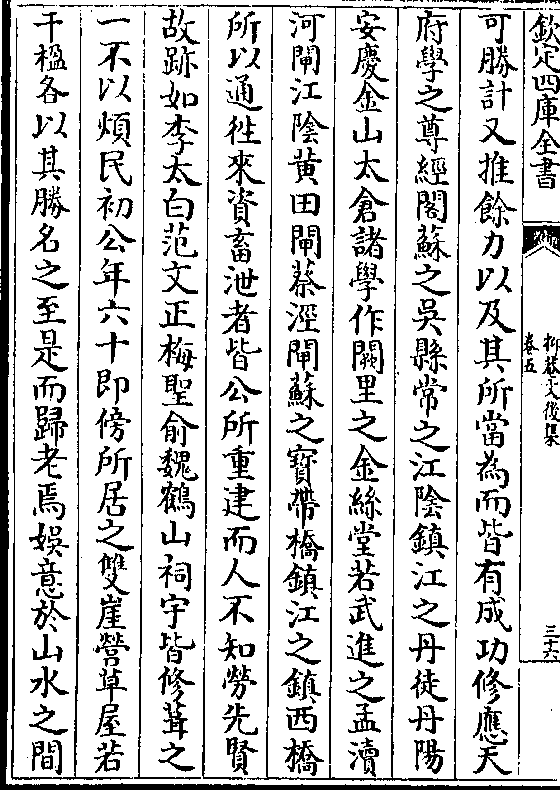 欽定四庫全書
卷五
三十六
可勝計又推餘力以及其所當為而皆有成功修應天
府學之尊經閣蘇之吳縣常之江陰鎮江之丹徒丹陽
安慶金山太倉諸學作闕里之金絲堂若武進之孟瀆
河閘江陰黄田閘蔡涇閘蘇之寳帶橋鎮江之鎮西橋
所以通徃來資畜泄者皆公所重建而人不知勞先賢
故跡如李太白范文正梅聖俞魏鶴山祠宇皆修葺之
一不以煩民初公年六十即傍所居之雙崖營草屋若
干楹各以其勝名之至是而歸老焉娛意於山水之間